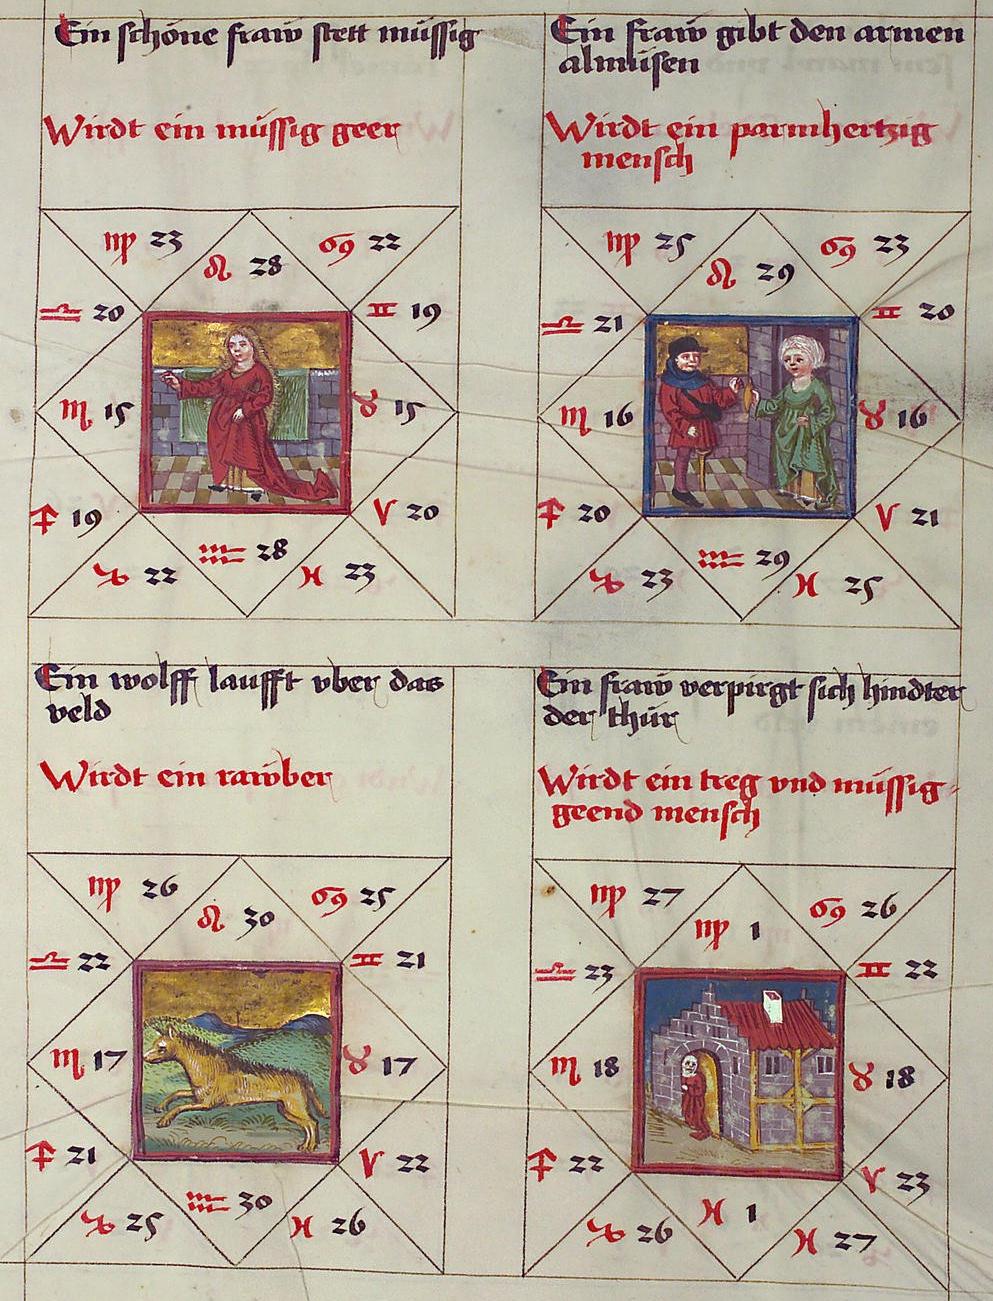 Ein schöne fraẅ stett müssig
Wirdt ein müssig geer
♍ 23
♌ 28
♋ 22
♎ 20
♊ 19
♏ 15
♉ 15
♐ 19
♈ 20
♑ 22
♒ 28
♓ 23
Ein fraẅ gibt den armen
almüsen
Wirdt ein parmhertzig
mensch
♍ 25
♌ 29
♋ 23
♎ 21
♊ 20
♏ 16
♉ 16
♐ 20
♈ 21
♑ 23
♒ 29
♓ 25
Ein wolff laufft vber das
veld
Wirdt ein raẅber
♍ 26
♌ 30
♋ 25
♎ 22
♊ 21
♏ 17
♉ 17
♐ 21
♈ 22
♑ 25
♒ 30
♓ 26
Ein fraẅ verpirgt sich hindter
der thür
Wirdt ein treg vnd müssig-
geend mensch
♍ 27
♍ 1
♋ 26
♎ 23
♊ 22
♏ 18
♉ 18
♐ 22
♈ 23
♑ 26
♓ 1
♓ 27